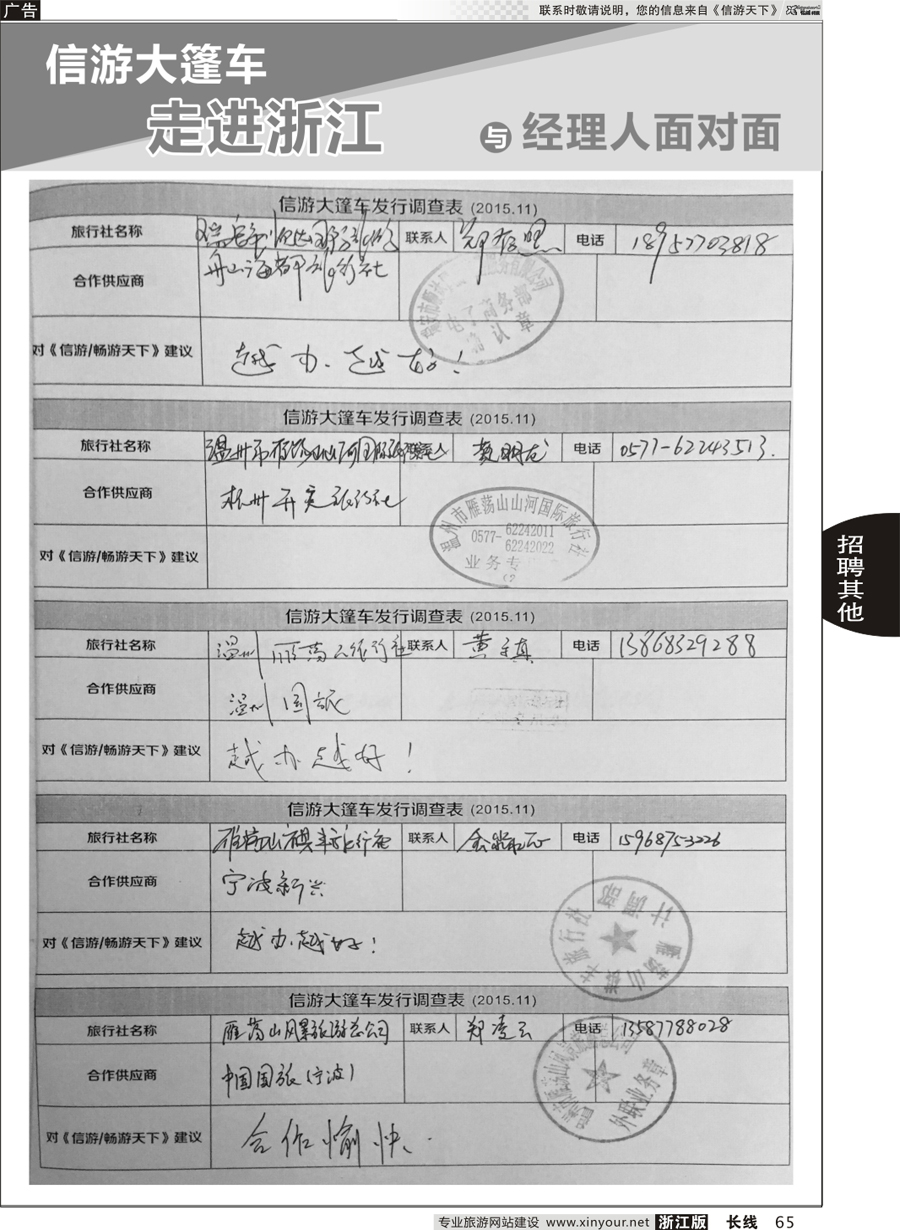 广告
联系时敬请说明，您的信息来自《信游天下》
信游大篷车
走进浙江
与 经理人面对面
信游大篷车发行调查表 (2015.11)
旅行社名称 联系人 电话 18957703818
合作供应商
对《信游/畅游天下》建议 越办、越好!
信游大篷车发行调查表 (2015.11)
旅行社名称 联系人 黄明龙 电话 0577-62243513.
合作供应商 杭州开元旅行社
温州市雁荡山山河国际旅行社
0577-62242011
62242022
业务专
对《信游/畅游天下》建议
信游大篷车发行调查表 (2015.11)
旅行社名称 温州雁荡山旅行社 联系人 电话 13868329288
合作供应商 温州国旅
对《信游/畅游天下》建议 越办越好!
信游大篷车发行调查表 (2015.11)
旅行社名称 联系人 电话 15968753226
合作供应商 宁波新兴
计调部
对《信游/畅游天下》建议 越办、越好!
信游大篷车发行调查表 (2015.11)
旅行社名称 雁荡山风景旅游总公司 联系人 郑凌云 电话 13587788028
合作供应商 中国国旅(宁波)
外联业务章
对《信游/畅游天下》建议 合作愉快、
招聘其他
专业旅游网站建设 www.xinyour.net 浙江版 长线 65